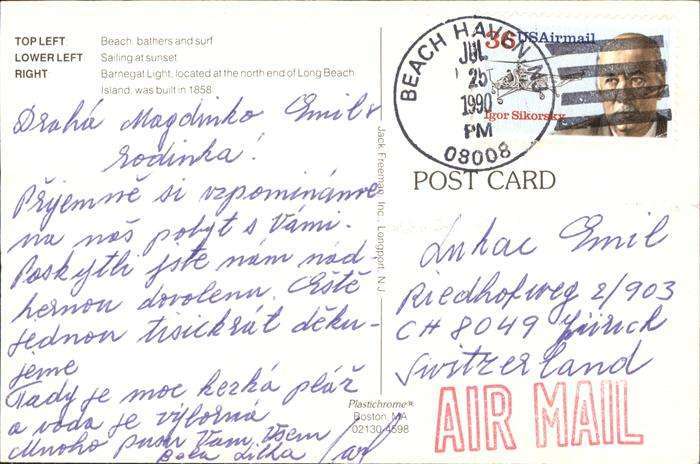 TOP LEFT Beach, bathers and surf
LOWER LEFT Sailing at sunset
RIGHT Barnegat Light, located at the north end of Long Beach
Island, was built in 1858.
Drahá Magdinko Emile
rodinka!
Příjemně si vzpomínáme
na náš pobyt s Vámi.
Poskytli jste nám nád
hernou dovolenu. Eště
jednou tisickrát děku-
jeme
Tady je moc hezká pláž
a voda je výborná
Mnoho pusn Vám Všem
Lilka
Jack Freeman, Inc., Longport, N.J.
Plastichrome®
Boston, MA
02130-4598
BEACH HAVEN NJ
JUL
25
1990
PM
08008
36 USAirmail
Igor Sikorsky
POST CARD
Luhac Emil
Riedhofweg 2/903
CH 8049 Zürich
Switzerland
AIR MAIL